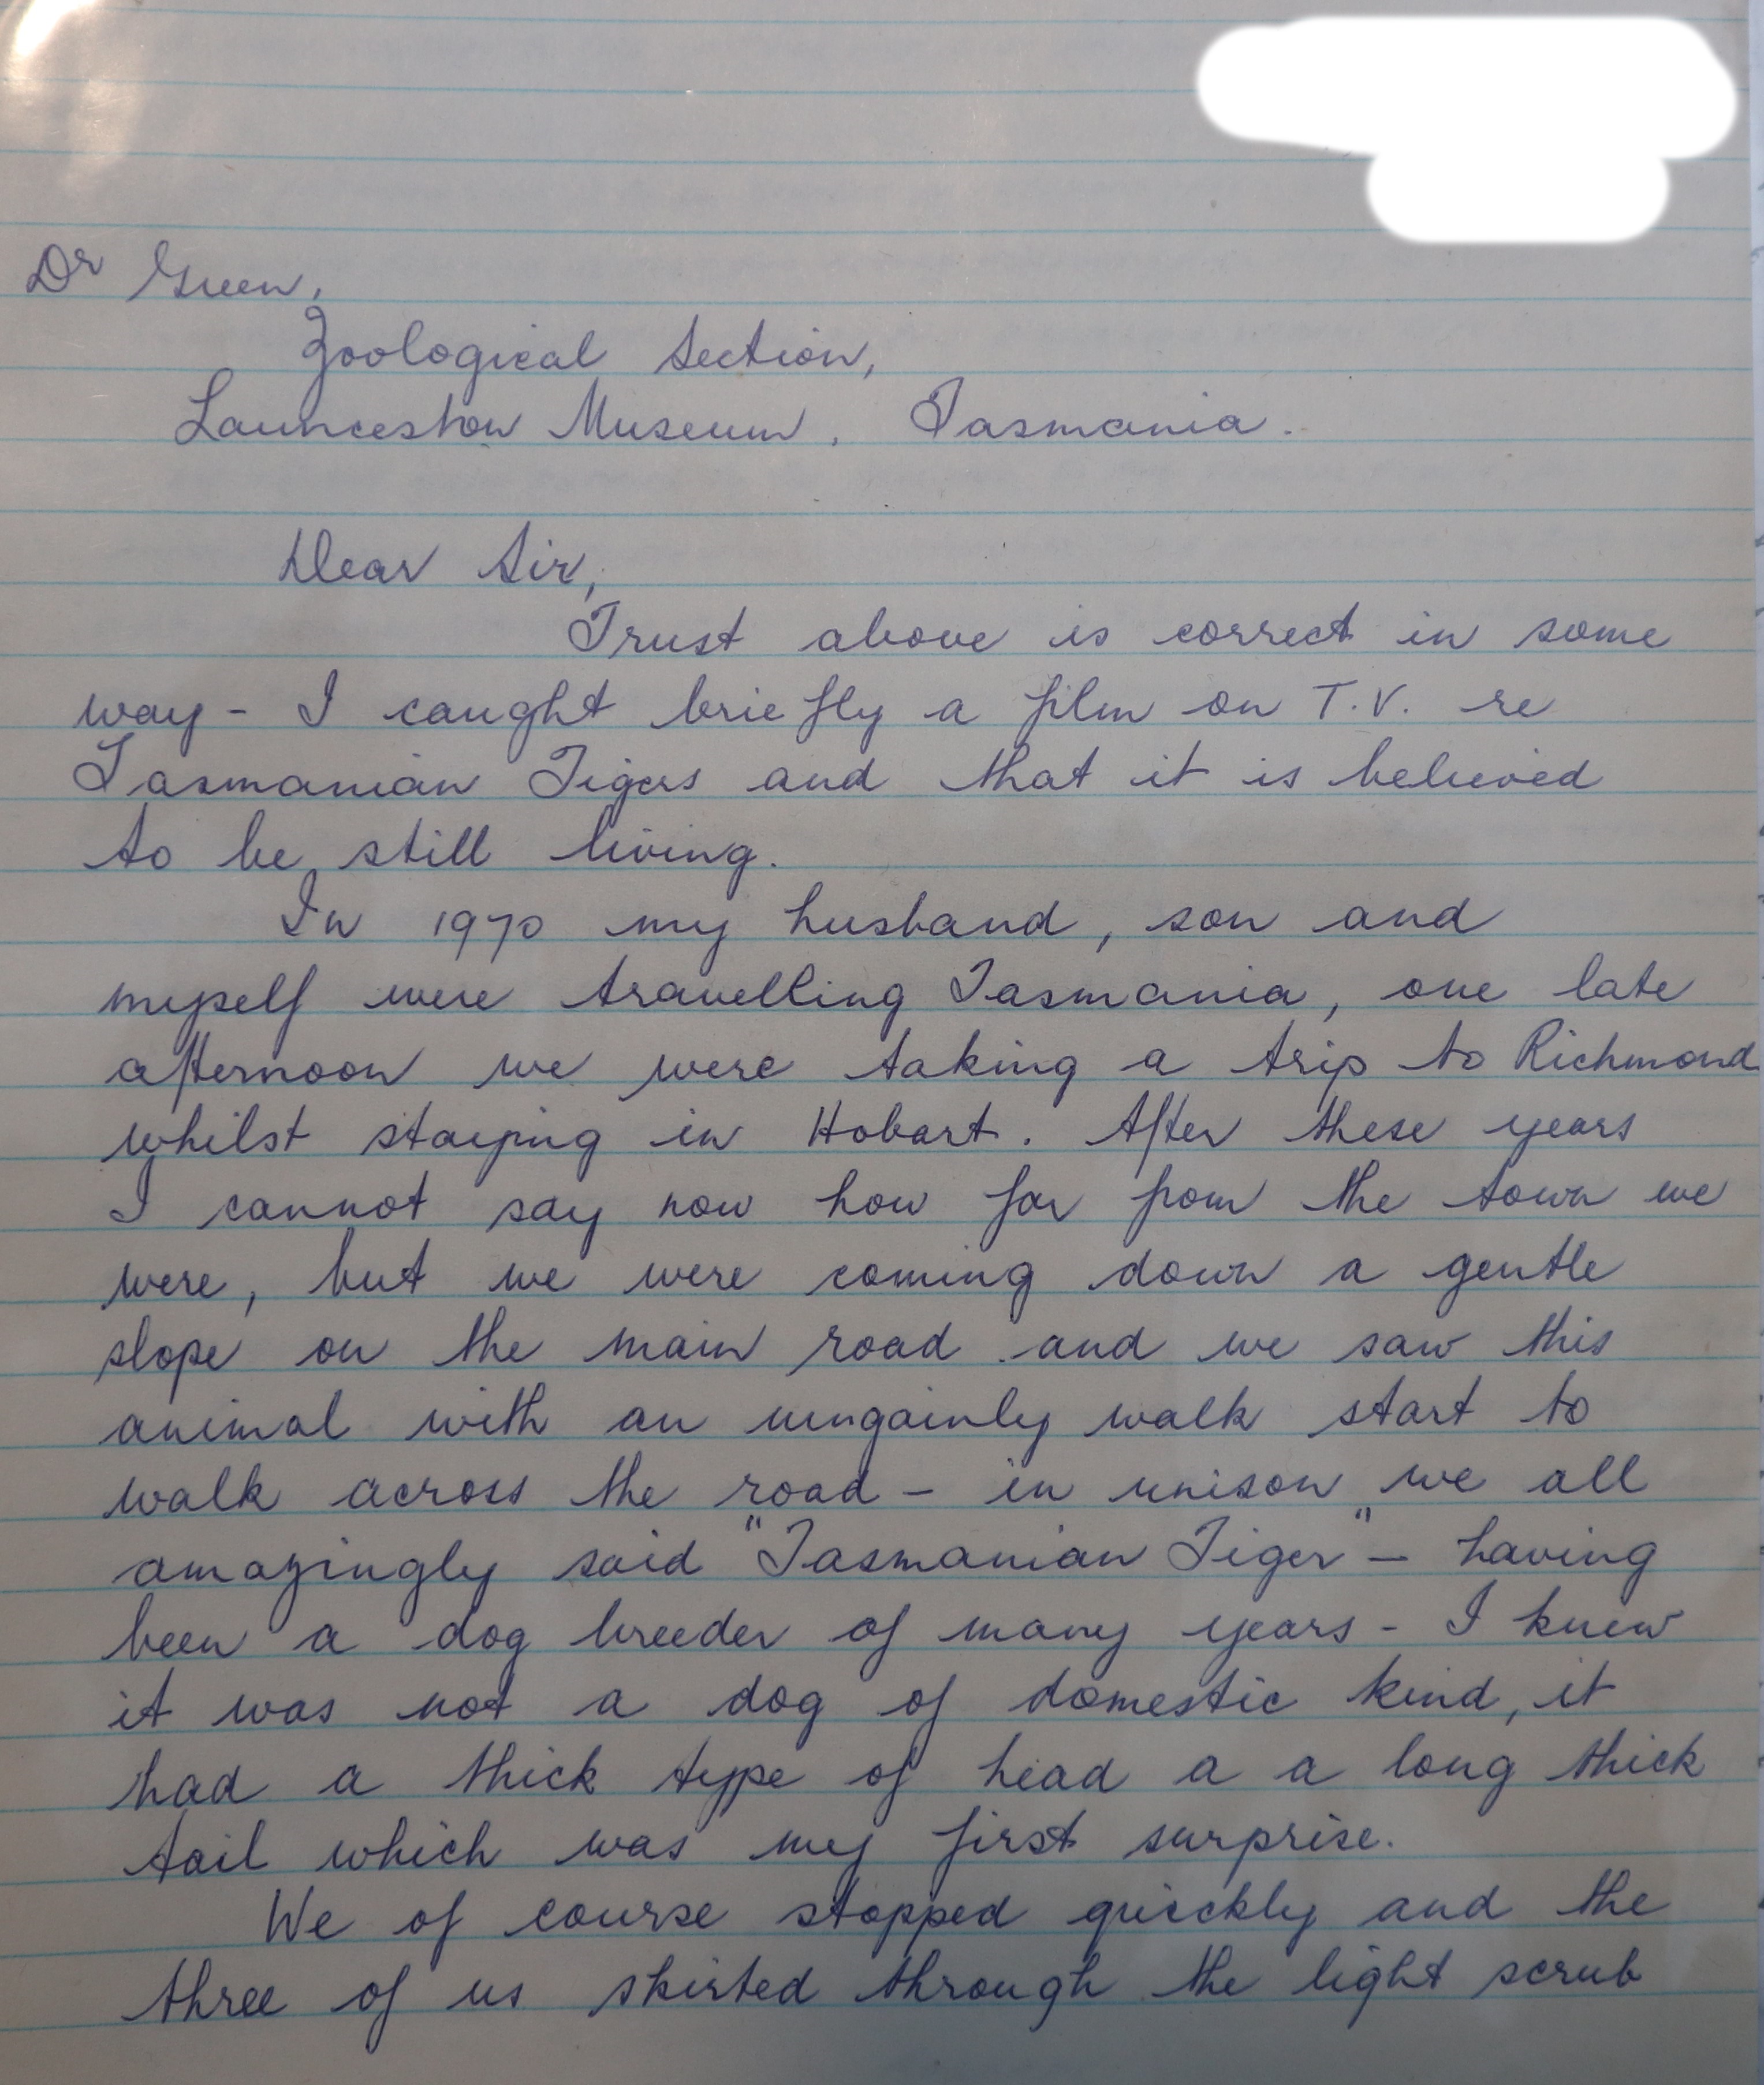 Dr Green,
Zoological Section,
Launceston Museum. Tasmania.
Dear Sir,
Trust above is correct in some
way - I caught briefly a film on T.V. re
Tasmanian Tigers and that it is believed
to be still living.
In 1970 my husband, son and
myself were travelling Tasmania, one late
afternoon we were taking a trip to Richmond
whilst staying in Hobart. After these years
I cannot say now how far from the town we
were, but we were coming down a gentle
slope on the main road and we saw this
animal with an ungainly walk start to
walk across the road - in unison we all
amazingly said "Tasmanian Tiger" - having
been a dog breeder of many years - I knew
it was not a dog of domestic kind, it
had a thick type of head a a long thick
tail which was my first surprise.
We of course stopped quickly and the
three of us skirted through the light scrub